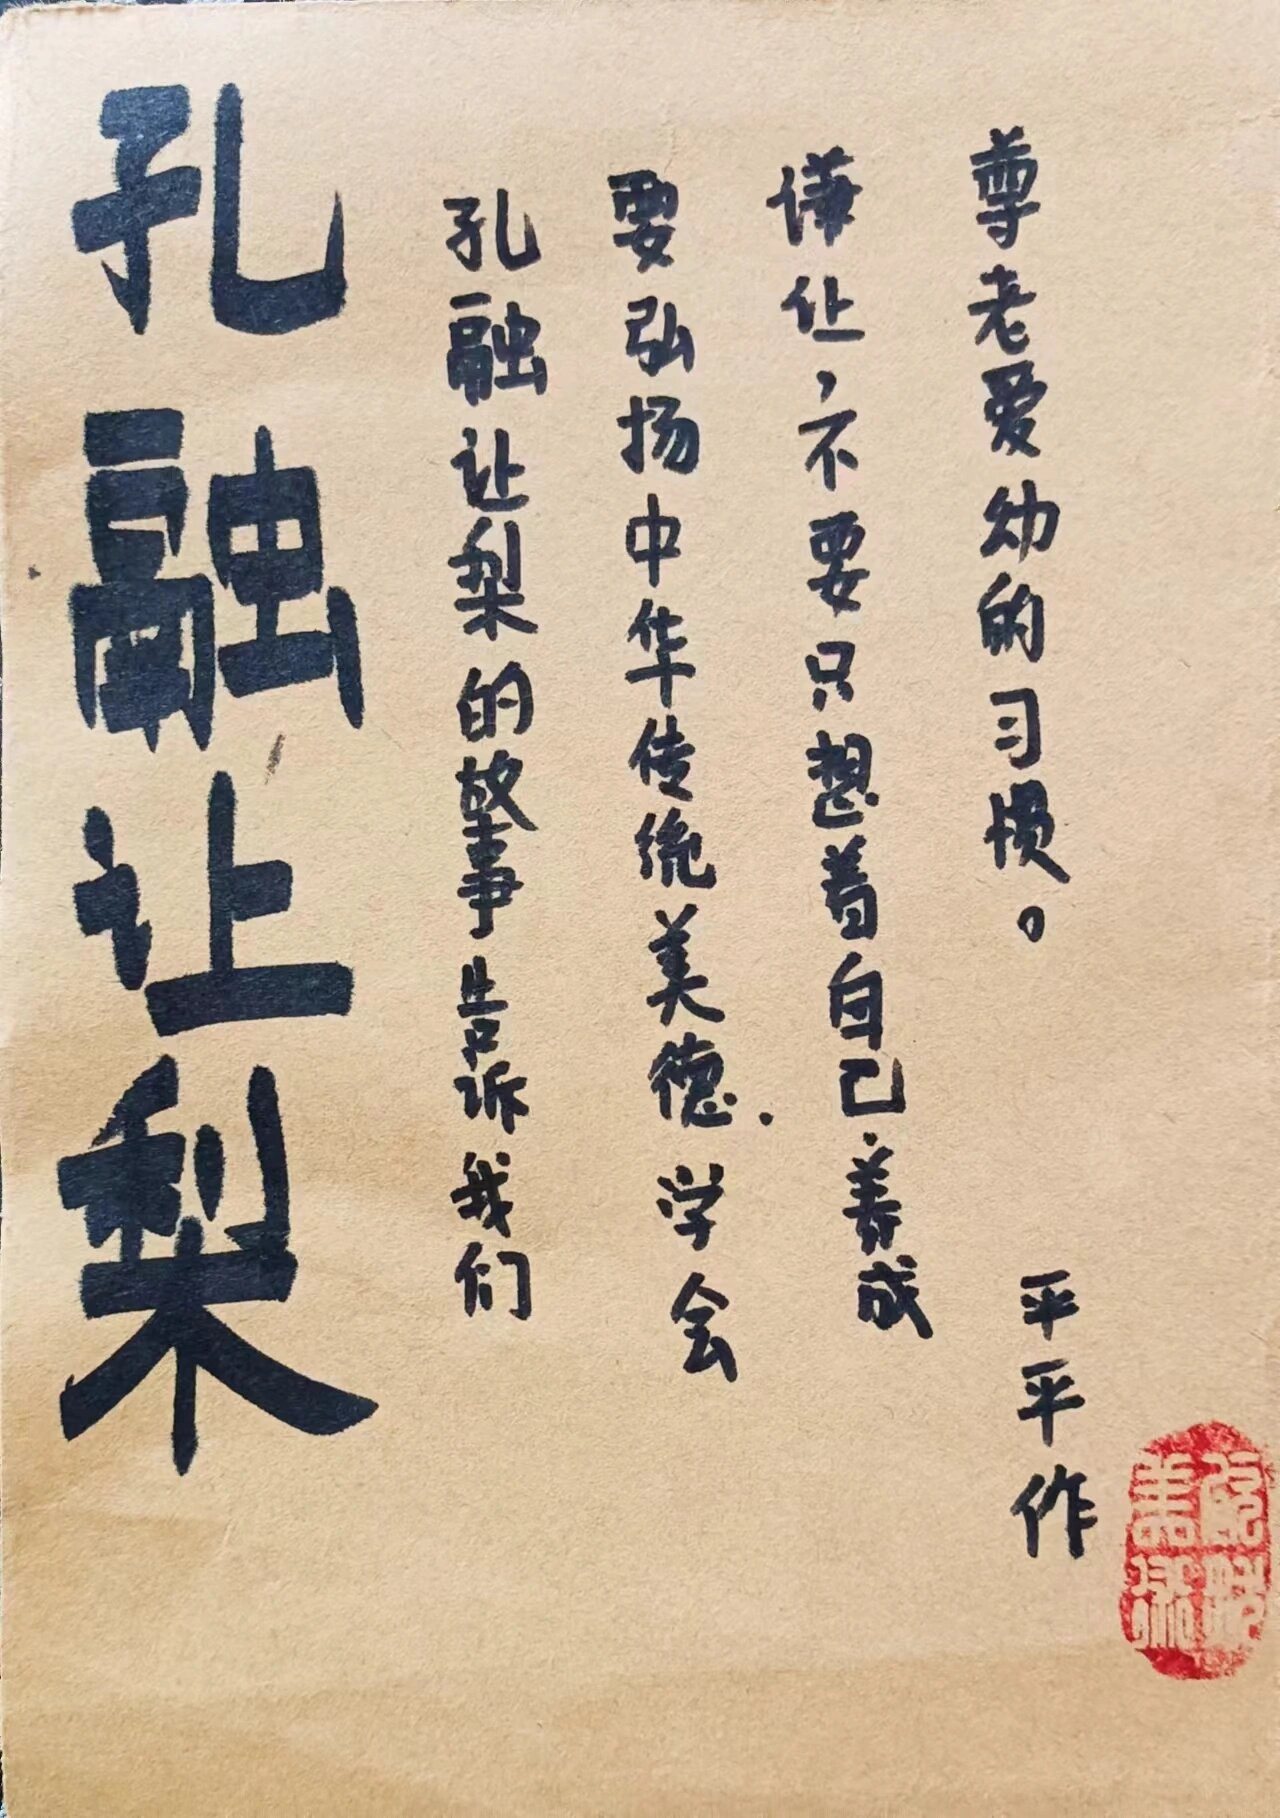 孔融让梨
孔融让梨的故事告诉我们
要弘扬中华传统美德.学会
谦让，不要只想着自己.养成
尊老爱幼的习惯。
平平作